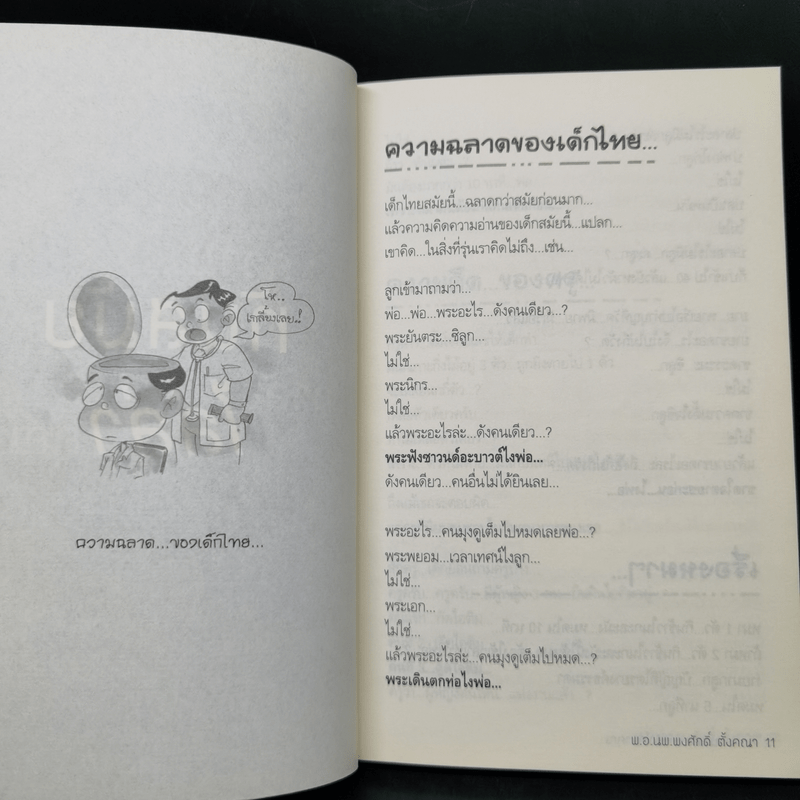 โห..
เกลี้ยงเลย.!
ความฉลาด...ของเด็กไทย...
ความฉลาดของเด็กไทย...
เด็กไทยสมัยนี้...ฉลาดกว่าสมัยก่อนมาก...
แล้วความคิดความอ่านของเด็กสมัยนี้...แปลก...
เขาคิด...ในสิ่งที่รุ่นเราคิดไม่ถึง...เช่น...
ลูกเข้ามาถามว่า...
พ่อ...พ่อ...พระอะไร...ดังคนเดียว...?
พระยันตระ...ซิลูก...
ไม่ใช่...
พระนิกร...
ไม่ใช่...
แล้วพระอะไรล่ะ...ดังคนเดียว...?
พระฟังซาวนด์อะบาวต์ไงพ่อ...
ดังคนเดียว...คนอื่นไม่ได้ยินเลย...
พระอะไร...คนมุงดูเต็มไปหมดเลยพ่อ...?
พระพยอม...เวลาเทศน์ไงลูก...
ไม่ใช่...
พระเอก...
ไม่ใช่...
แล้วพระอะไรล่ะ...คนมุงดูเต็มไปหมด...?
พระเดินตกท่อไงพ่อ...
พ.อ.นพ.พงศักดิ์ ตั้งคณา 11